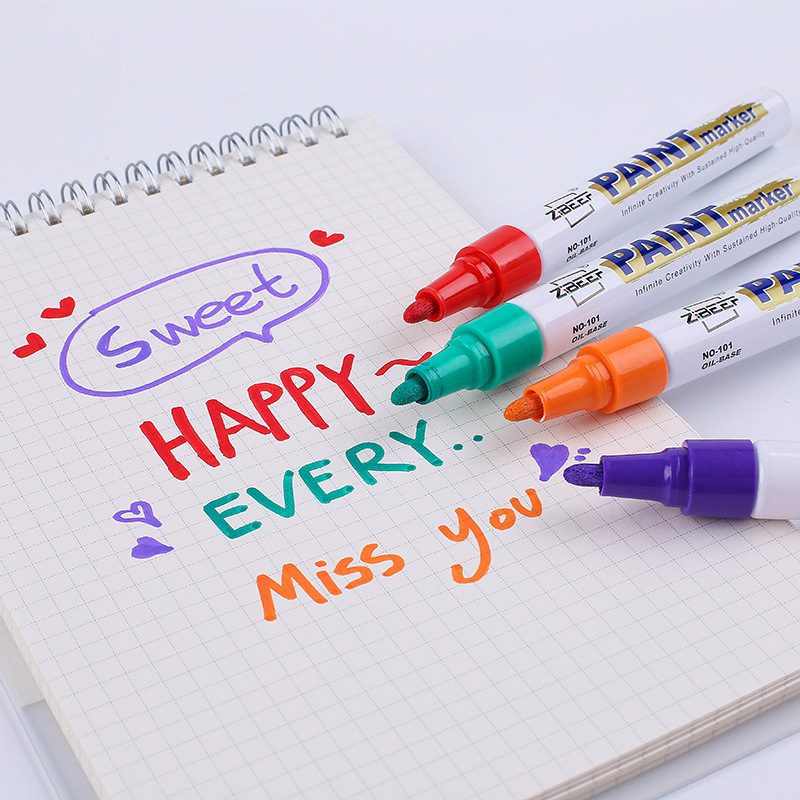 Sweet
HAPPY~
EVERY..
Miss you
ZiBEEF
NO-101
OIL-BASE
PAINT marker
Infinite Creativity With Sustained High-Quality
ZiBEEF
NO-101
OIL-BASE
PAINT marker
Infinite Creativity With Sustained High-Quality
ZiBEEF
NO-101
OIL-BASE
PA
Infinite